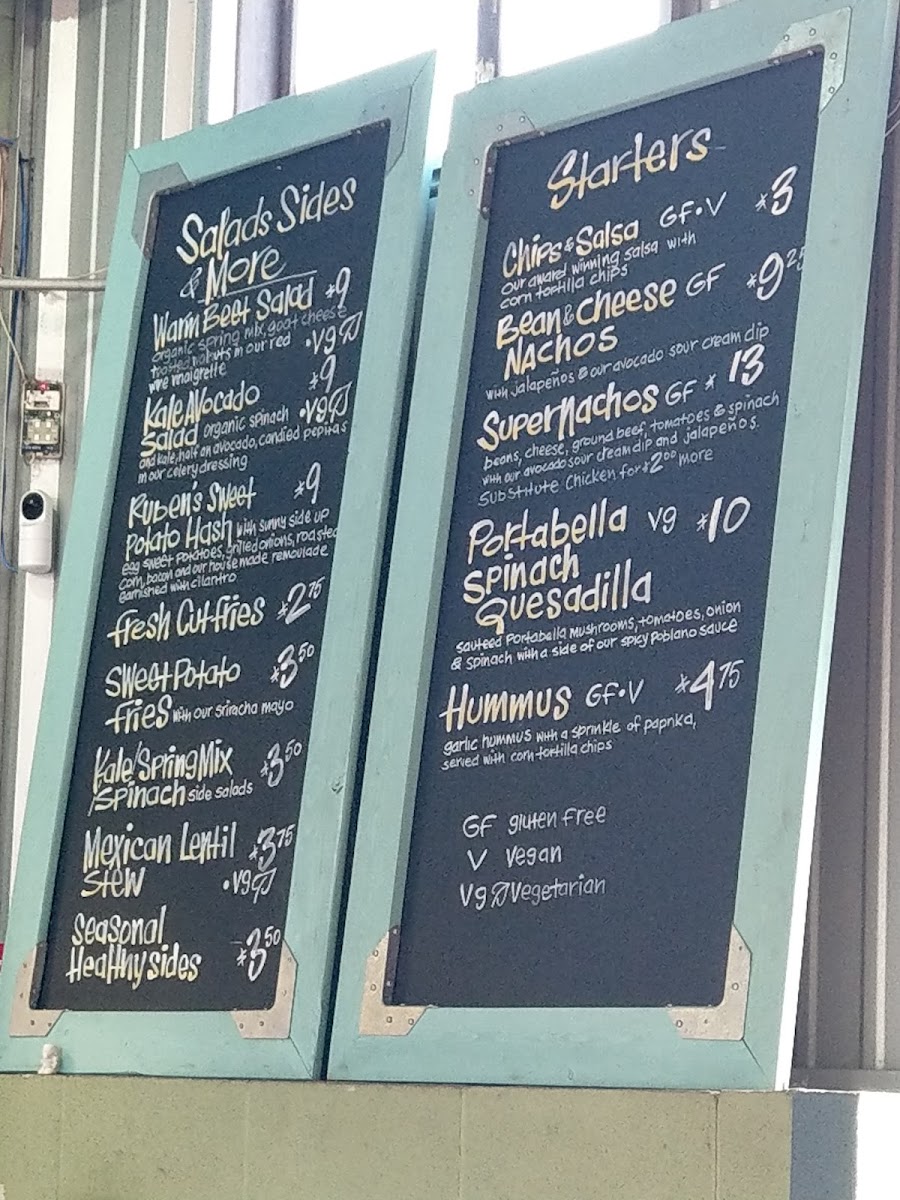 Salads Sides
& More
Warm Beet Salad $9
organic spring mix, goat cheese
toasted walnuts in our red •Vg
wine vinaigrette
Kale Avocado $9
Salad organic spinach •Vg
and kale, half an avocado, candied pepitas
in our celery dressing
Ruben's Sweet $9
Potato Hash with sunny side up
egg sweet potatoes, grilled onions, roasted
corn, bacon and our house made remoulade
garnished with cilantro
Fresh Cut fries $2.75
Sweet Potato $3.50
fries with our sriracha mayo
Kale/Spring Mix $3.50
/Spinach side salads
Mexican Lentil $3.75
Stew •Vg
Seasonal
Healthy sides $3.50
Starters
Chips & Salsa GF•V $3
our award winning salsa with
corn tortilla chips
Bean & Cheese GF $9.25
Nachos
with jalapeños & our avocado sour cream dip
Super Nachos GF $13
beans, cheese, ground beef, tomatoes & spinach
with our avocado sour cream dip and jalapeños.
Substitute Chicken for $2.00 more
Portabella Vg $10
Spinach
Quesadilla
sauteed Portabella mushrooms, tomatoes, onion
& spinach with a side of our spicy Poblano sauce
Hummus GF•V $4.75
garlic hummus with a sprinkle of paprika,
served with corn tortilla chips
GF gluten free
V Vegan
Vg Vegetarian